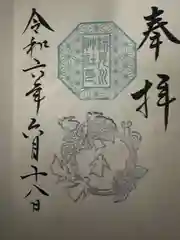 奉拝
令和六年六月十八日